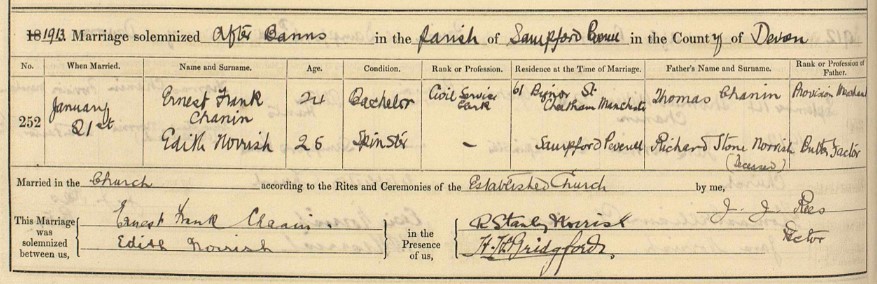 1913. Marriage solemnized After Banns in the Parish of Sampford Peverell in the County of Devon
No. When Married. Name and Surname. Age. Condition. Rank or Profession. Residence at the Time of Marriage. Father's Name and Surname. Rank or Profession of Father.
252 January 21st Ernest Frank Chanin 24 Bachelor Civil Service Clerk 61 St. Cheetham Manchester Thomas Chanin Provision Merchant
Edith Norrish 26 Spinster — Sampford Peverell Richard Stone Norrish (Deceased) Butter Factor
Married in the Church according to the Rites and Ceremonies of the Established Church by me,
J. J. Rees
Rector
This Marriage was solemnized between us, Ernest Frank Chanin. Edith Norrish in the Presence of us, R Stanley Norrish